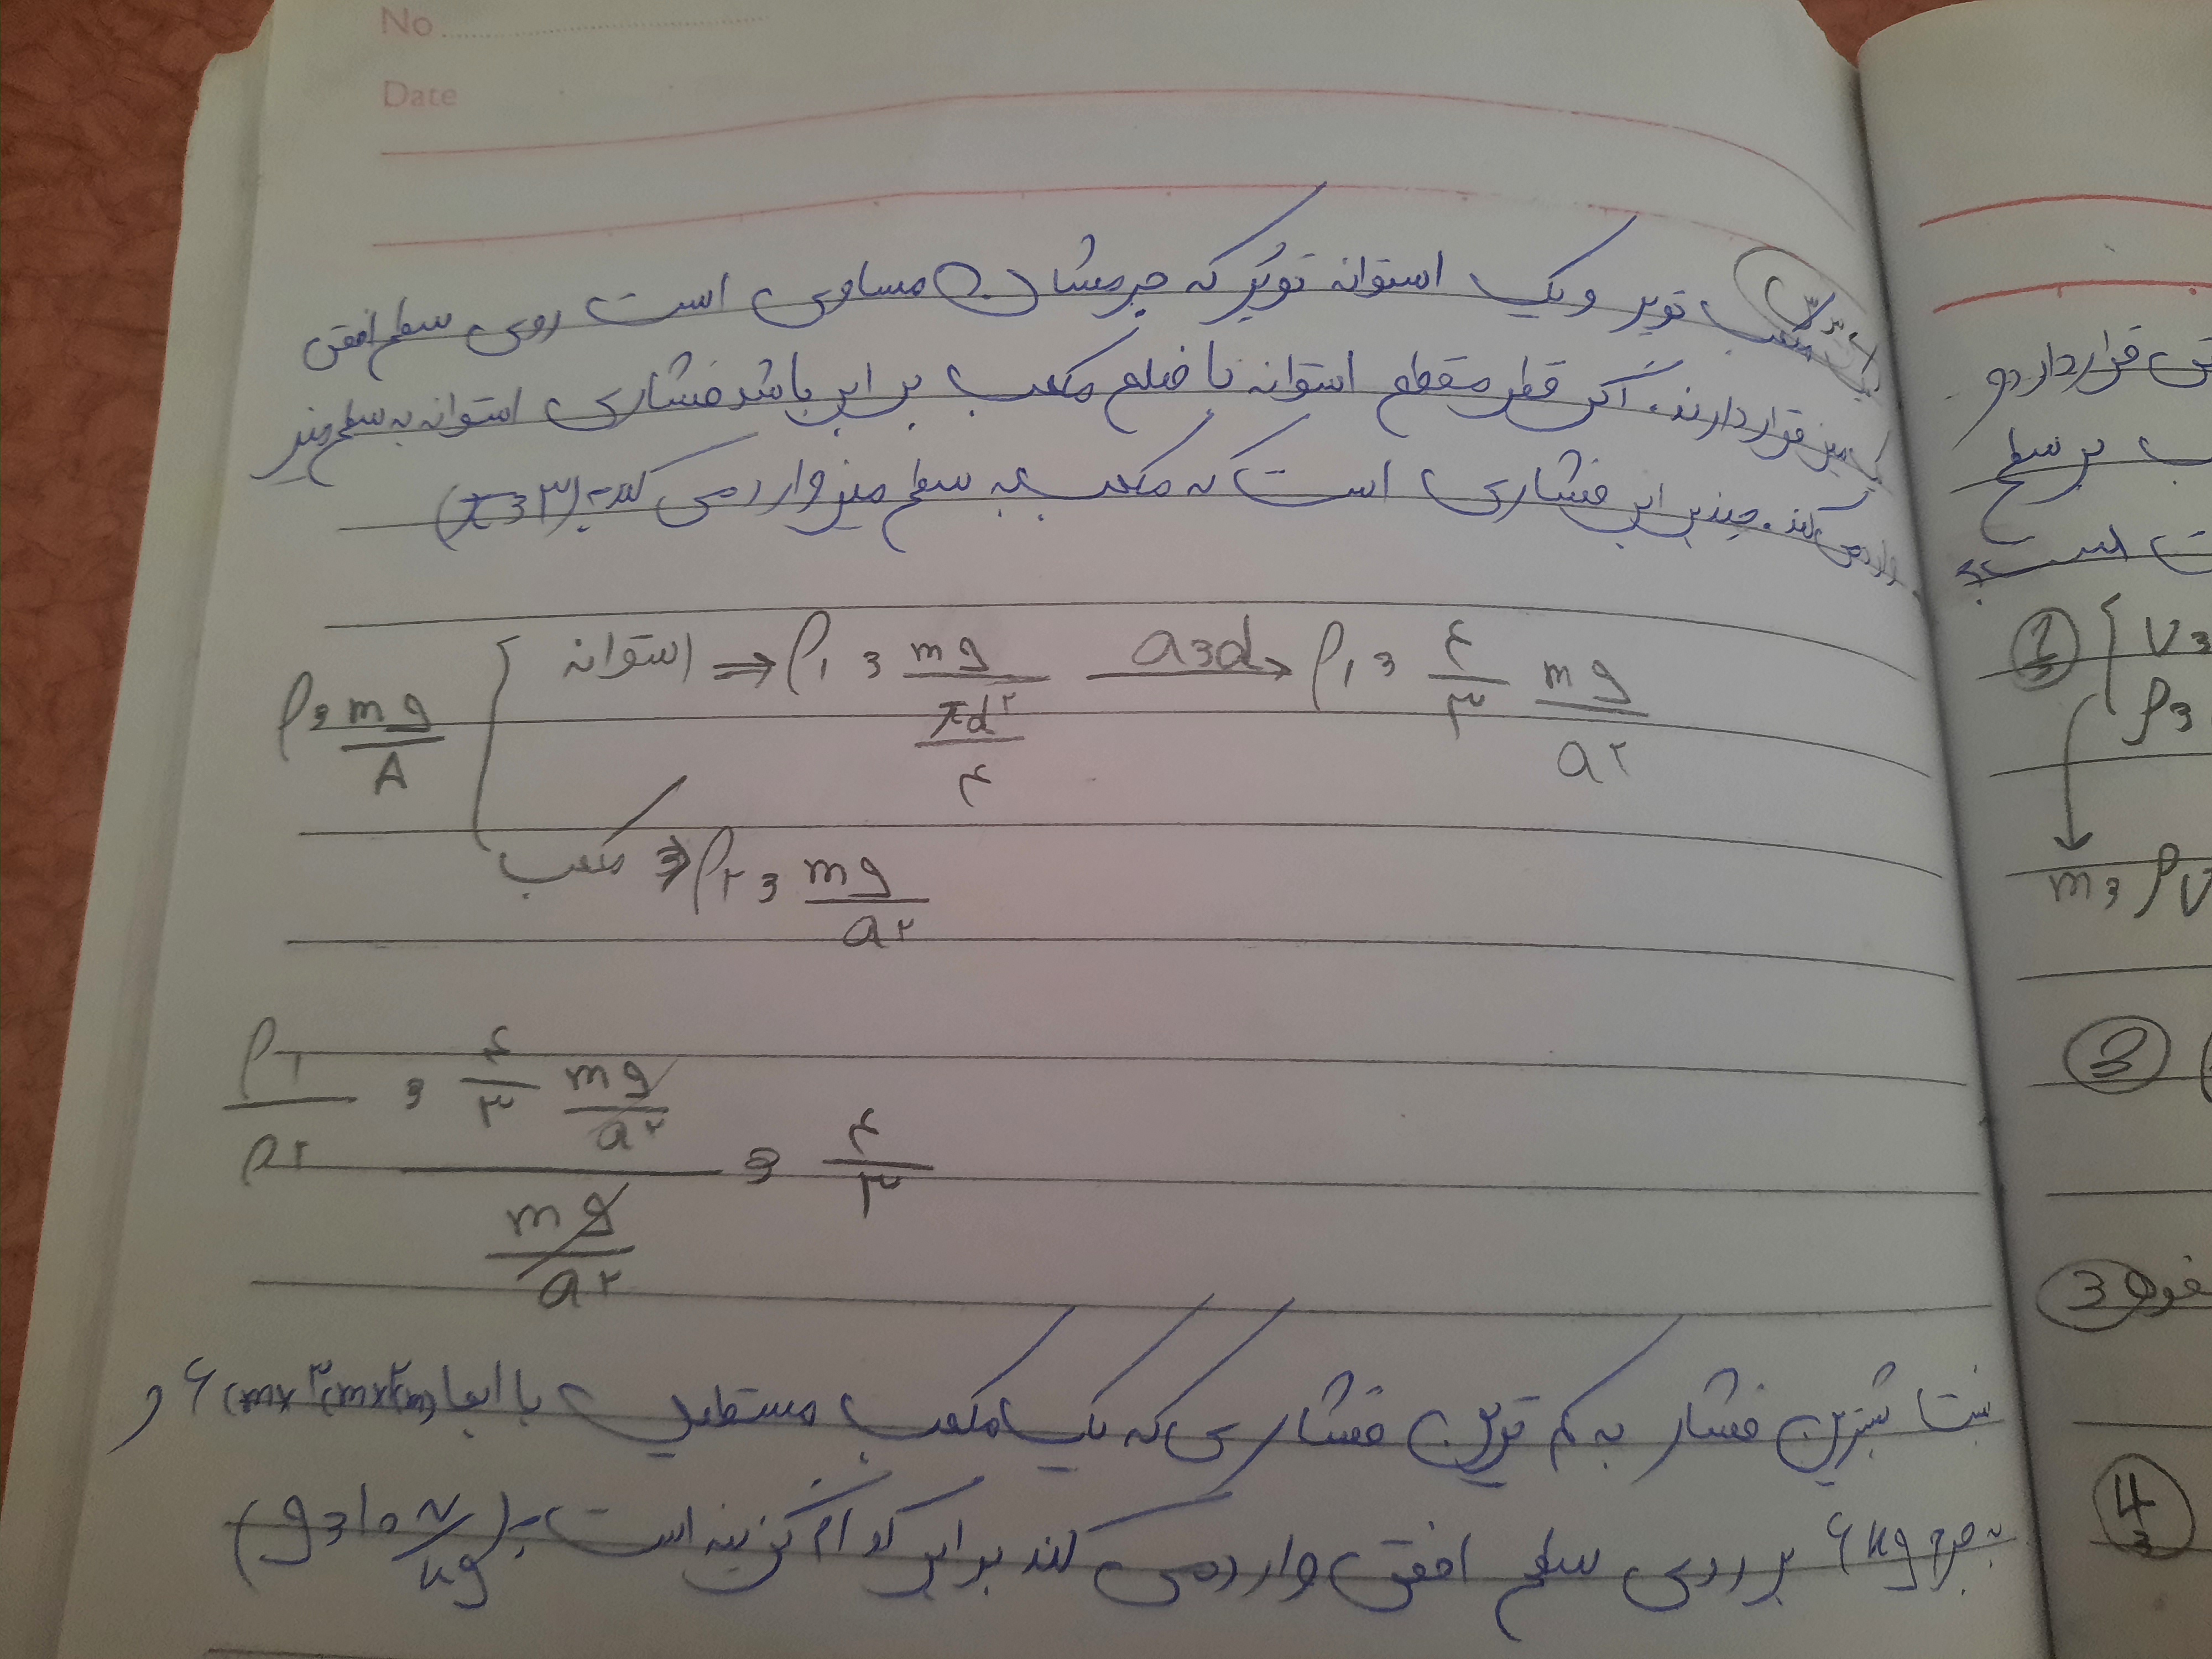 No
Date
مکعب توپر و یک استوانه توپُر که جرمشان مساوی است روی سطح افقی
میز قرار دارند. اگر قطر مقطع استوانه با ضلع مکعب برابر باشد فشاری استوانه به سطح میز
وارد می کند. چند برابر فشاری است که مکعب به سطح میز وارد می کند؟ (π = ۳)
P = mg/A
استوانه ⇒ P₁ = mg/(πd²/۴) a=d → P₁ = ۴/۳ mg/a²
مکعب ⇒ P₂ = mg/a²
P₁/P₂ = (۴/۳ mg/a²)/(mg/a²) = ۴/۳
فشار به کم ترین فشاری که یک مکعب مستطیل با ابعا
بر روی سطح افقی وارد می کند برابر کدام گزینه است؟ (g=۱۰ N/kg)
ب بر سطح
ت است؟
① { V =
P =
m = ρV
②
③
④